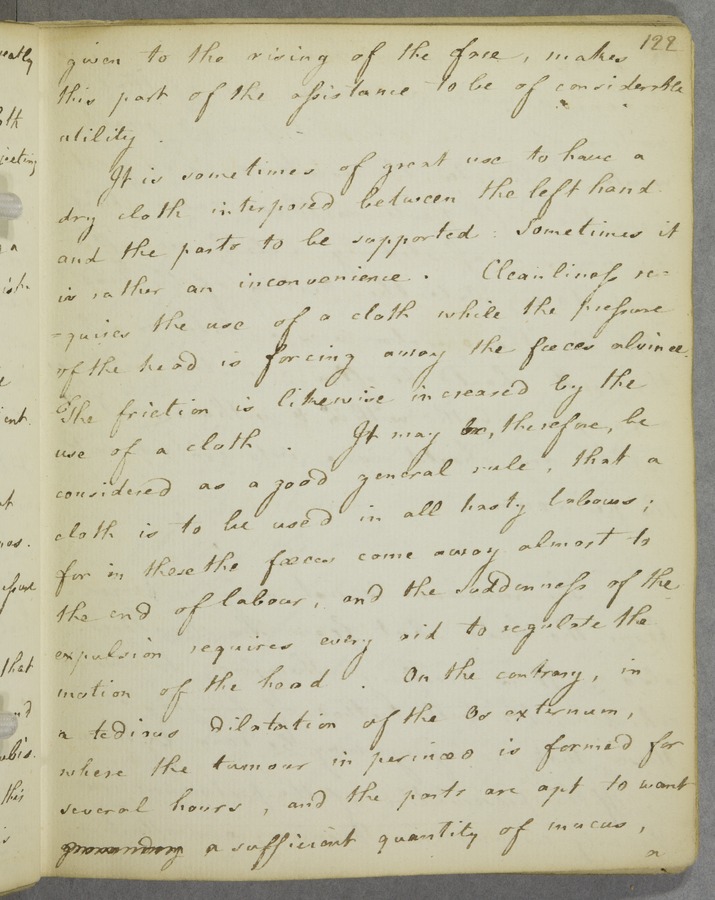 122
given to the rising of the face, makes
this part of the assistance to be of considerable
utility.
It is sometimes of great use to have a
dry cloth interposed between the left hand
and the parts to be supported: Sometimes it
is rather an inconvenience. Cleanliness re-
-quires the use of a cloth while the pressure
of the head is forcing away the fæces alvinæ.
The friction is likewise increased by the
use of a cloth. It may be, therefore, be
considered as a good general rule, that a
cloth is to be used in all hasty labours;
for in these the fœces come away almost to
the end of labour, and the suddenness of the
expulsion requires every aid to regulate the
motion of the head. On the contrary, in
a tedious dilatation of the Os externum,
where the tumour in perinæo is formed for
several hours, and the parts are apt to want
a sufficient quantity of mucus,
a